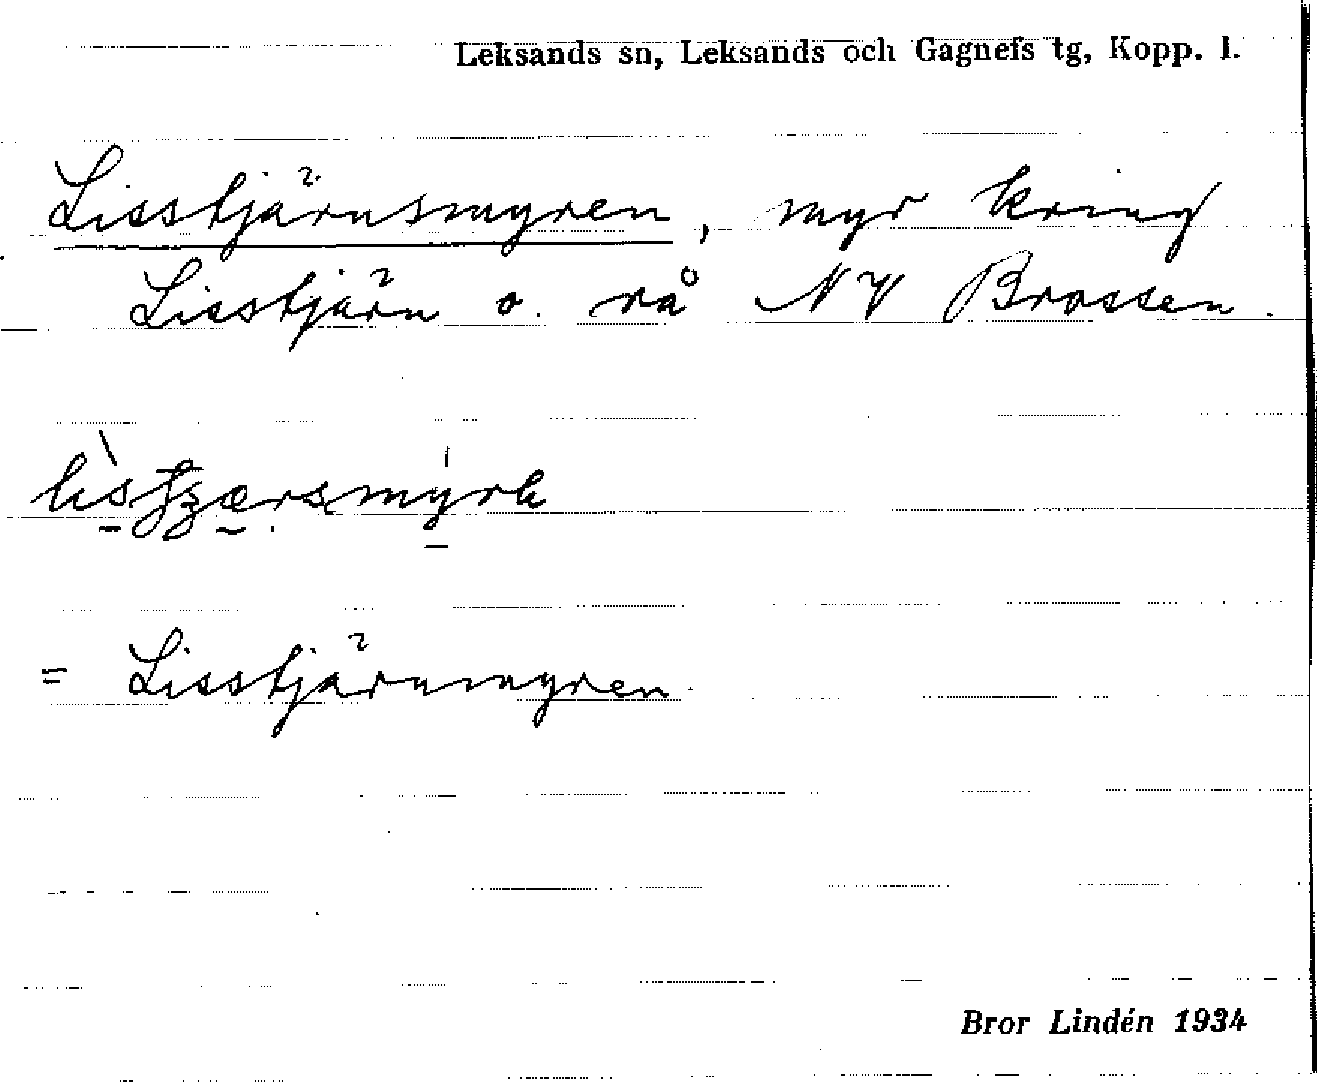 Leksands sn, Leksands och Gagnefs tg, Kopp. l.
Lisstjärnsmyren, myr kring
Lisstjärn o. rå NV Brossen.
= Lisstjärnmyren
Bror Lindén 1934